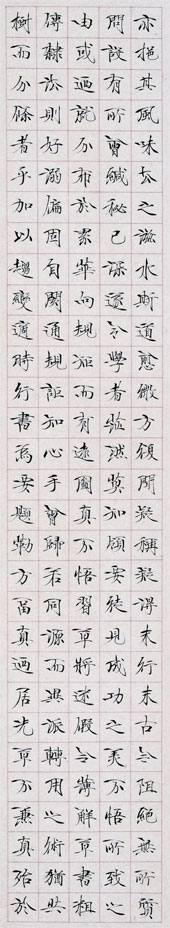 亦挹其風味去之滋永斯道愈微方復聞疑稱疑得末行末古今阻絕無所質
問設有所會緘秘已深遂令學者茫然莫知領要徒見成功之美不悟所致之
由或迺就分布於累年向規矩而猶遠圖真不悟習草將迷假令薄解草書粗
傳隸法則好溺偏固自閡通規詎知心手會歸若同源而異派轉用之術猶共
樹而分條者乎加以趨變適時行書為要題勒方畐真迺居先草不兼真殆於